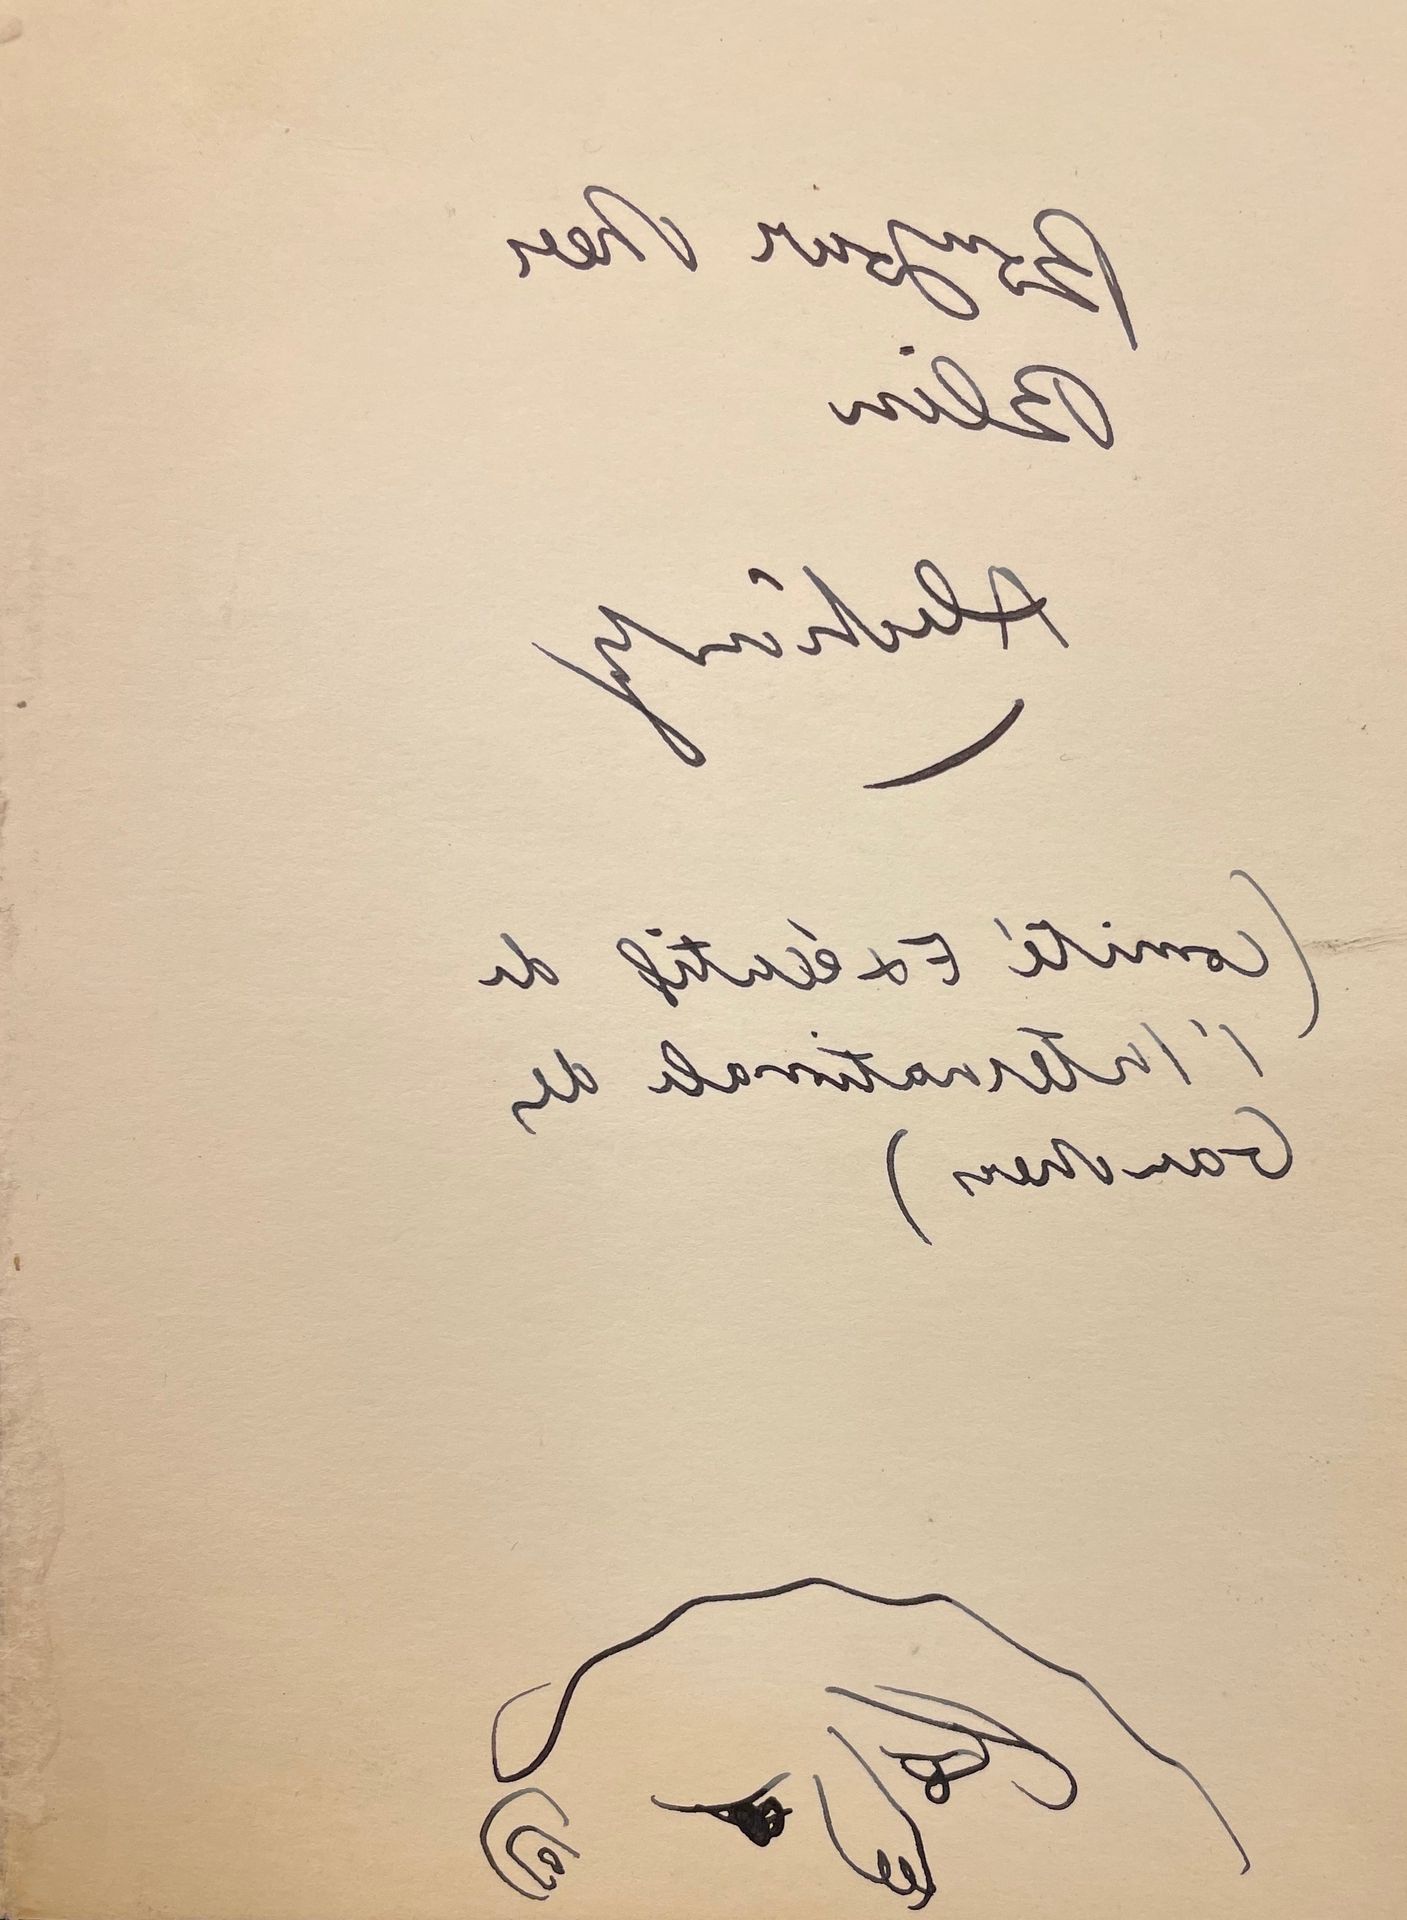 Bonjour cher
Blin
Alechinsky
(Comité Exécutif du
l'Internationale de
Gaucher)